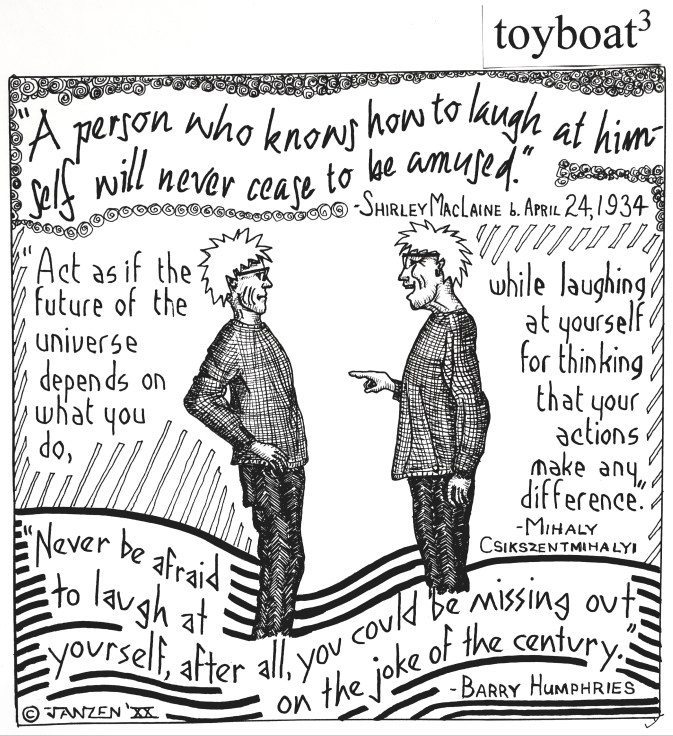 toyboat³
"A person who knows how to laugh at him-
self will never cease to be amused."
-SHIRLEY MACLAINE b. APRIL 24, 1934
"Act as if the
future of the
universe
depends on
what you
do,
while laughing
at yourself
for thinking
that your
actions
make any
difference."
-MIHALY
CSIKSZENTMIHALYI
"Never be afraid
to laugh at
yourself, after all, you could be missing out
on the joke of the century."
-BARRY HUMPHRIES
© JANZEN 'XX